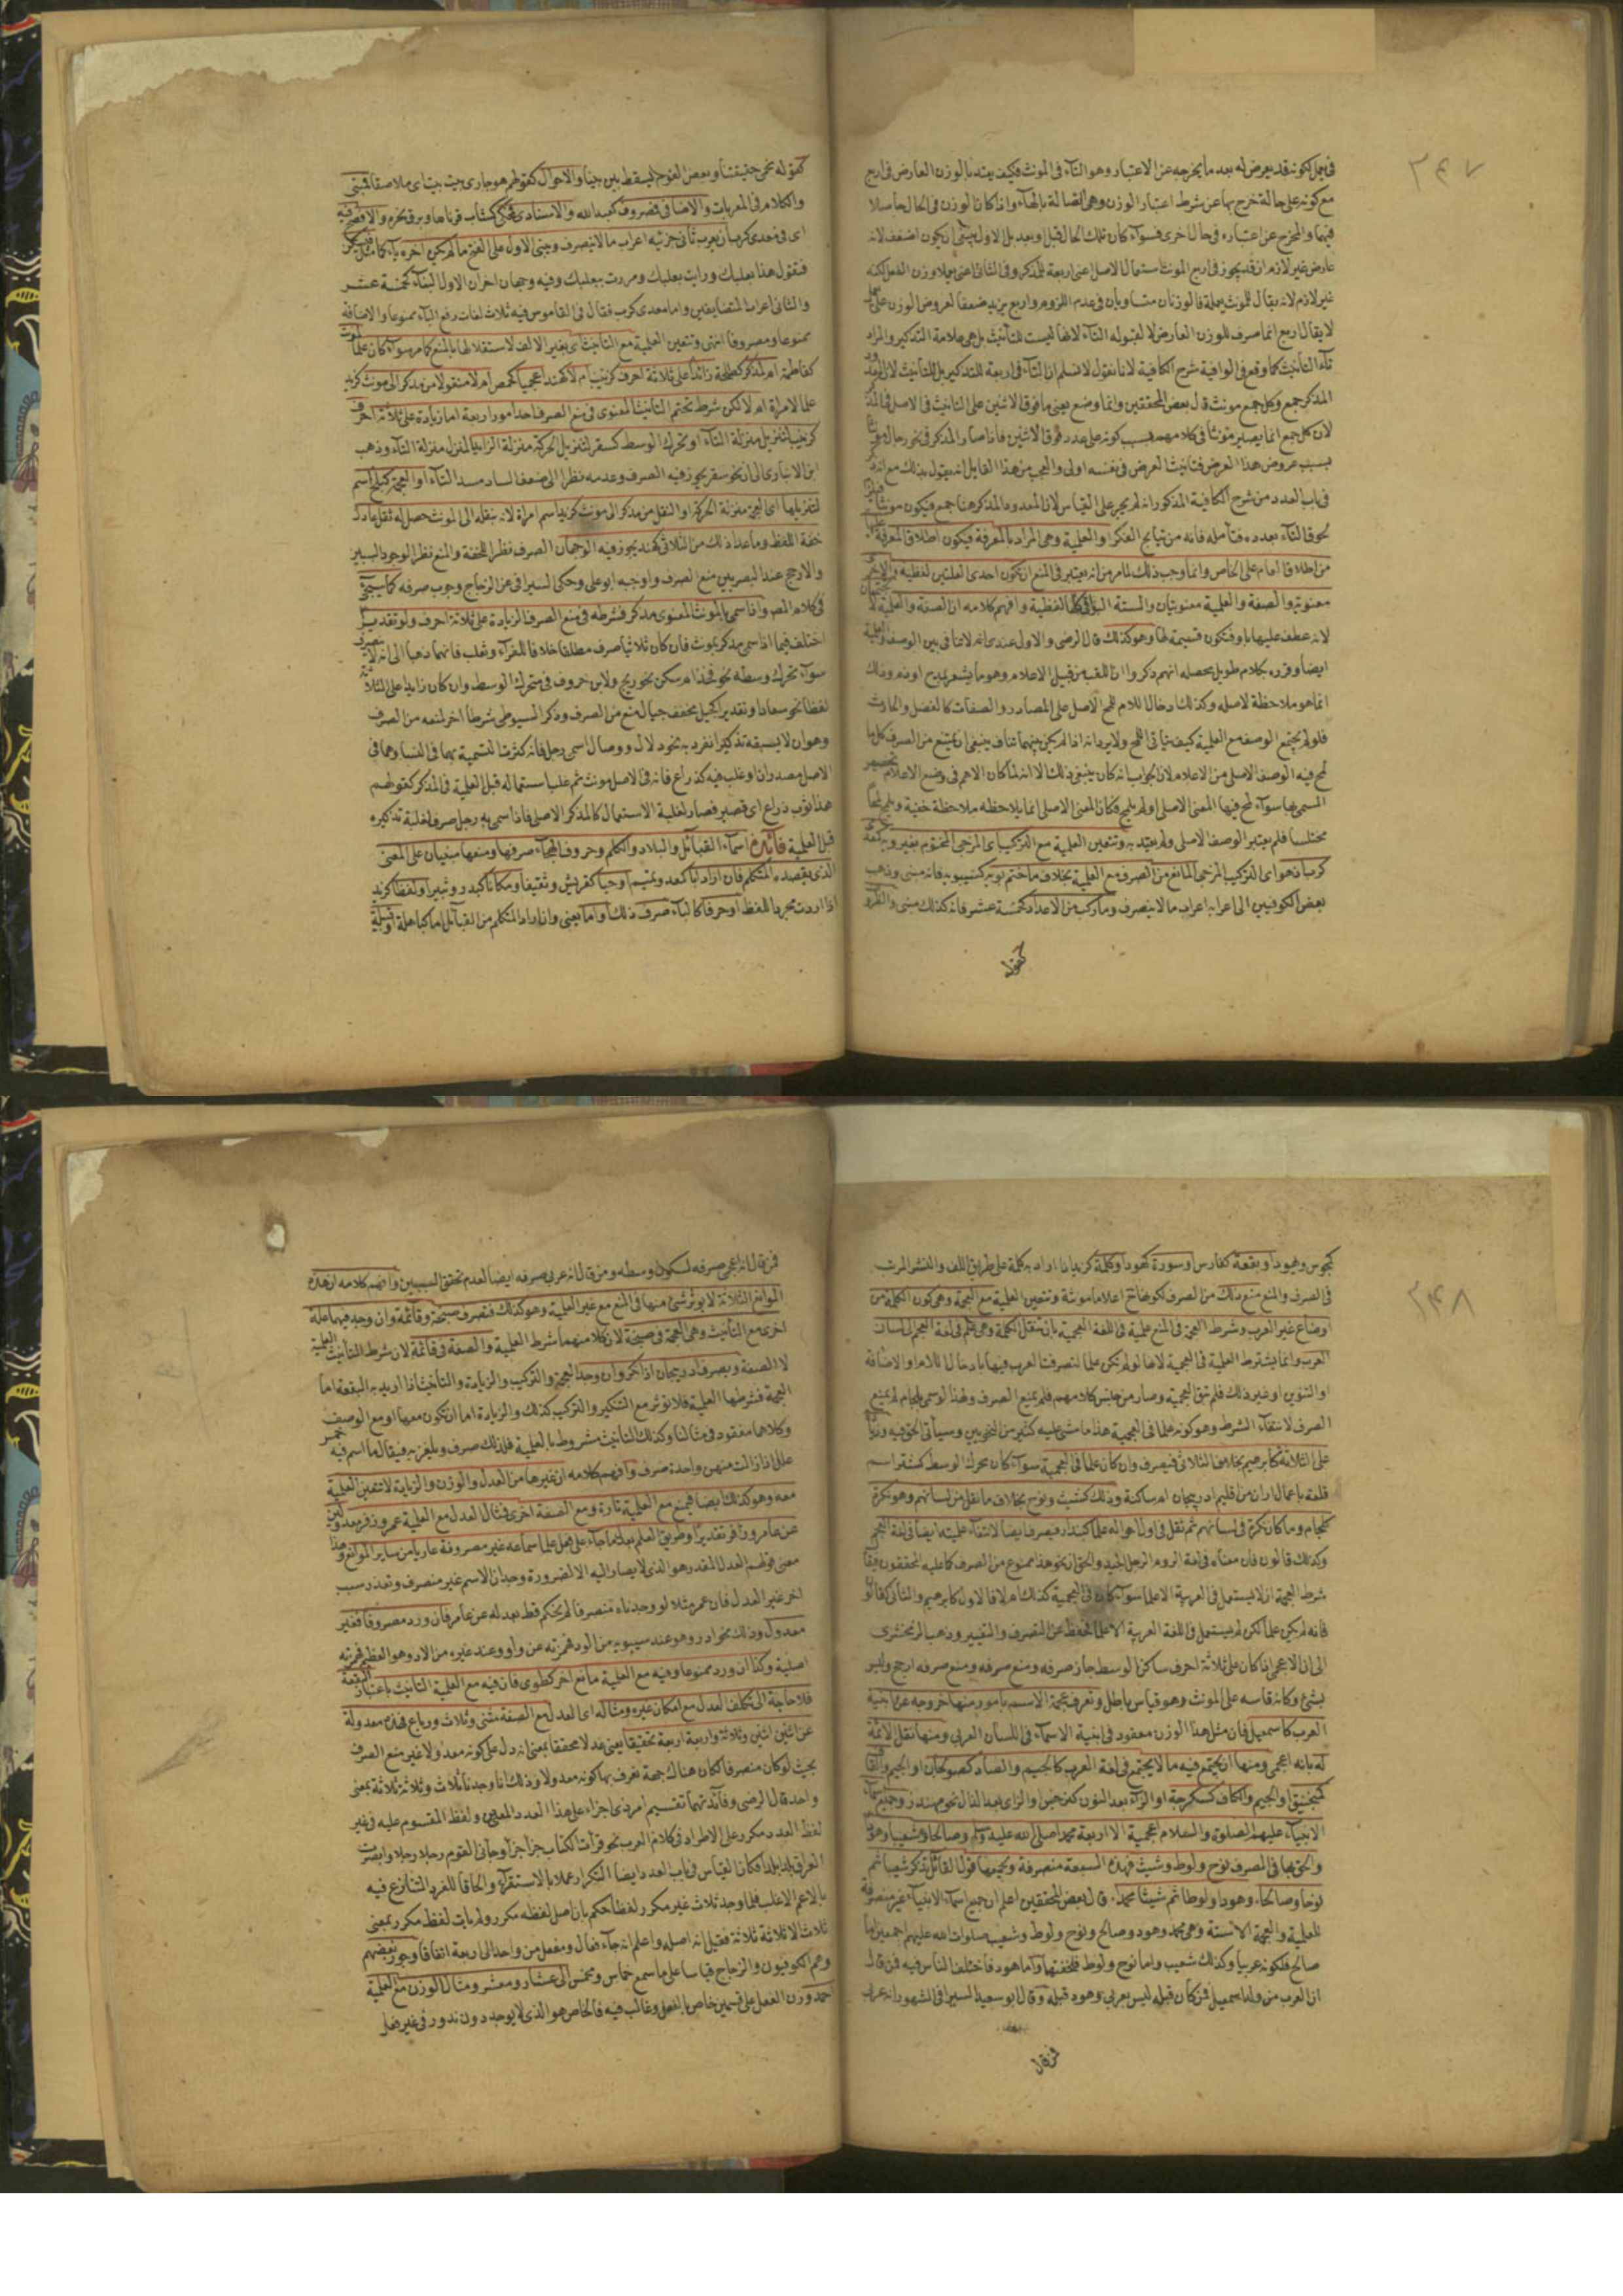 ٣٤٧
في يعمل لكونه قد يعرض له بعد ما يخرجه عن الاعتبار وهو التآء في المونث فكيف يعتد بالوزن العارض في اربع
مع كونه على حالة تخرج بها عن شرط اعتبار الوزن وهي اتصاله بالهآء واذا كان الوزن في الحال حاصلا
فيهما والمخرج عن اعتباره في حال اخرى فسوآء كان تلك الحال قبل او بعد بل الاول ينبغي ان يكون اضعف لانه
عارض غير لازم اذ قد يجوز في اربع المونث استعمال الاصل اعني اربعة للمذكر وفي الثاني اعني يعملا وزن الفعل لكنه
غير لازم لانه يقال للمونث يعملة فالوزنان متساويان في عدم اللزوم واربع يزيد ضعفا لعروض الوزن على يعمل
لا يقال اربع انما صرف للوزن العارض لا لقبوله التآء لانها ليست للتأنيث بل هي علامة التذكير والمراد
تآء التأنيث كما وقع في الوافية شرح الكافية لانا نقول لا نسلم ان التآء في اربعة للتذكير بل للتأنيث لان
المذكر جمع وكل جمع مونث قال بعض المحققين وانما وضع يعني ما فوق الاثنين على التانيث في الاصل
لان كل جمع انما يصير مونثا في كلامهم بسبب كونه على عدد فوق الاثنين فاذا صار المذكر في نحو رجال مونثا
بسبب عروض هذا العرض فتانيث العرض في نفسه اولى والعجب من هذا القايل انه يقول بذلك مع
في باب العدد من شرح الكافية المذكور انه لم يجر على القياس لان المعدود المذكر هنا جمع فيكون مونثا
لحوق التآء بعدده فتأمله فانه من نتايج الفكر او العلمية وهي المراد بالمعرفة فيكون اطلاق المعرفة
من اطلاق العام على الخاص وانما وجب ذلك لما مر من انه يعتبر في المنع ان يكون احدى العلتين لفظية والاخرى
معنوية والصفة والعلمية معنويتان والستة البواقي كلها لفظية وافهم كلامه ان الصفة والعلمية لا
لانه عطف عليها باو فتكون قسيمة لها وهو كذلك قال الرضي والاول عندي انه لا تنافي بين الوصف والعلمية
ايضا وقرره بكلام طويل محصله انهم ذكروا ان اللقب من قبيل الاعلام وهو ما يشعر بمدح او ذم وذلك
انما هو ملاحظة لاصله وكذلك ادخال اللام للمح الاصل على المصادر والصفات كالفضل والحارث
فلو لم يجتمع الوصف مع العلمية كيف يتاتى اللمح ولا يرد انه اذا لم يكن بينهما تناف ينبغي ان يمتنع من الصرف كل ما
لمح فيه الوصف الاصلي من الاعلام لان الجواب انه كان ينبغي ذلك الا انه لما كان الاهم في وضع الاعلام
المسمى بها سوآء لمح فيها المعنى الاصلي او لم يلمح فكان المعنى الاصلي انما يلاحظه ملاحظة خفية ويلمح لمحا
مختلسا فلم يعتبر الوصف الاصلي ولم يعتد به وتتعين العلمية مع التركيب اي المزجي المختوم بغير ويه كمعدي
كرب اذ هو اي التركيب المزجي المانع من الصرف مع العلمية بخلاف ما ختم بويه كسيبويه فانه مبني وذهب
بعض الكوفيين الى اعرابه اعراب ما لا ينصرف وما ركب من الاعداد كخمسة عشر فانه كذلك مبني والظروف
كقوله
كقوله نحمي حقيقتنا وبعض القوم ليسقط بين بينا والاحوال كقولهم هو جاري بيت بيت اي ملاصقا فبنى
والكلام في المعربات والاضافي فمصروف كعبد الله والاسنادي فمحكي كشاب قرناها وبرق نحره والافصح فيه
اي في معدي كرب ان يعرب ثاني جزئيه اعراب ما لا ينصرف ويبنى الاول على الفتح ما لم يكن اخره يآء كما مثل
فتقول هذا بعلبك ورايت بعلبك ومررت ببعلبك وفيه وجهان اخران الاول البنآء كخمسة عشر
والثاني اعراب المتضايفين واما معدي كرب فقال في القاموس فيه ثلاث لغات رفع البآء ممنوعا والاضافة
ممنوعا ومصروفا انتهى وتتعين العلمية مع التانيث اي بغير الالف لاستقلالها بالمنع كما مر سوآء كان علما لمونث
كفاطمة ام لمذكر كطلحة زائدا على ثلاثة احرف كزينب ام لا كهند اعجميا كحمص ام لا منقولا من مذكر الى مونث كزيد
علما لامراة ام لا لكن شرط تحتم التانيث المعنوي في منع الصرف احد امور اربعة اما زيادة على ثلاثة احرف
كزينب لتنزيله منزلة التآء او تحرك الوسط كسقر لتنزيل الحركة منزلة الرابع المنزل منزلة التآء وذهب
ابن الانباري الى ان نحو سقر يجوز فيه الصرف وعدمه نظرا الى ضعف الساد مسد التآء او العجمة كبلخ اسم
لتنزيلها اي العجمة منزلة الحركة او النقل من مذكر الى مونث كزيد اسم امراة لانه بنقله الى المونث حصل له ثقل عادل
خفة اللفظ وما عدا ذلك من الثلاثي كهند يجوز فيه الوجهان الصرف نظرا للخفة والمنع نظرا لوجود السببين
والارجح عند البصريين منع الصرف واوجبه ابو علي وحكى السيرافي عن الزجاج وجوب صرفه كما سيجئ
في كلام المص واذا سمي بالمونث المعنوي مذكر فشرطه في منع الصرف الزيادة على ثلاثة احرف ولو تقديرا
اختلف فيما اذا سمي مذكر بمونث فان كان ثلاثيا صرف مطلقا خلافا للفرآء وثعلب فانهما ذهبا الى انه لا ينصرف
سوآء تحرك وسطه نحو فخذ ام سكن نحو ريح ولابن خروف في متحرك الوسط وان كان زايدا على الثلاثة
لفظا نحو سعاد او تقديرا كجيل مخفف جيال منع من الصرف وذكر السيوطي شرطا اخر لمنعه من الصرف
وهو ان لا يسبقه تذكير انفرد به نحو دلال ووصال اسمي رجل فانه كثرت التسمية بهما في النسا وهما في
الاصل مصدران او غلب فيه كذراع فانه في الاصل مونث ثم غلب استعماله قبل العلمية في المذكر كقولهم
هذا ثوب ذراع اي قصير فصار لغلبة الاستعمال كالمذكر الاصلي فاذا سمي به رجل صرف لغلبة تذكيره
قبل العلمية فائدة اسمآء القبائل والبلاد والكلم وحروف الهجآء صرفها ومنعها مبنيان على المعنى
الذي يقصده المتكلم فان اراد ابا كمعد وتميم او حيا كقريش وثقيف او مكانا كبدر وثبير او لفظا كزيد
اذا اردت مجرد اللفظ او حرفا كالبآء صرف ذلك واما يعني وان اراد المتكلم من القبائل اما كباهلة او قبيلة
٣٤٨
كمجوس ويهود او بقعة كفارس او سورة كهود او كلمة كزيد اذا اراد به كلمة على طريق اللف والنشر المرتب
في الصرف والمنع منع ذلك من الصرف لكونها حينئذ اعلاما مونثة وتتعين العلمية مع العجمة وهي كون الكلمة من
اوضاع غير العرب وشرط العجمة في المنع علمية في اللغة العجمية بان تنقل الكلمة وهي علم في لغة العجم الى لسان
العرب وانما يشترط العلمية في العجمية لانها لو لم تكن علما لتصرفت العرب فيها بادخال اللام والاضافة
او التنوين او غير ذلك فلم تبق العجمية وصار من جنس كلامهم فلم يمنع الصرف ولهذا لو سمي بلجام لم يمنع
الصرف لانتفآء الشرط وهو كونه علما في العجمية هذا ما مشى عليه كثير من النحويين وسيأتي الحق فيه وزيادة
على الثلاثة كابرهيم بخلاف الثلاثي فيصرف وان كان علما في العجمية سوآء كان محرك الوسط كشتر اسم
قلعة باعمال اران من اقليم ادربيجان ام ساكنه وذلك كشيث ونوح بخلاف ما نقل من لسانهم وهو نكرة
كلجام وما كان نكرة في لسانهم ثم نقل في اول احواله علما كبندار فيصرف ايضا لانتفآء علميته ايضا في لغة العجم
وكذلك قالون فان معناه في لغة الروم الرجل الجيد والحق ان نحو هذا ممنوع من الصرف كما عليه المحققون فيقال
شرط العجمة ان لا يستعمل في العربية الا علما سوآء كان في العجمية كذلك ام لا فالاول كابرهيم والثاني كقالون
فانه لم يكن علما لكن لم يستعمل في اللغة العربية الا علما فحفظ عن التصرف والتغيير وذهب الزمخشري
الى ان الاعجمي اذا كان على ثلاثة احرف ساكن الوسط جاز صرفه ومنع صرفه ومنع صرفه ارجح وليس
بشئ وكانه قاسه على المونث وهو قياس باطل وتعرف عجمة الاسم بامور منها خروجه عن ابنية
العرب كاسمعيل فان مثل هذا الوزن مفقود في ابنية الاسمآء في اللسان العربي ومنها نقل الائمة
له بانه اعجمي ومنها ان يجتمع فيه ما لا يجتمع في لغة العرب كالجيم والصاد كصولجان او الجيم والقاف
كمنجنيق او الجيم والكاف كسكرجة او الرآء بعد النون كنرجس والزاي بعد الدال نحو مهندز وجميع اسمآء
الانبيآء عليهم الصلوة والسلام اعجمية الا اربعة محمد صلى الله عليه وسلم وصالحا وشعيبا وهود
والحق بها في الصرف نوح ولوط وشيث فهذه السبعة منصرفة ويجمعها قول القائل تذكر شعيبا ثم
نوحا وصالحا، وهودا ولوطا ثم شيثا محمدا. قال بعض المحققين اعلم ان جميع اسمآء الانبيآء غير منصرفة
للعلمية والعجمة الا ستة وهي محمد وهود وصالح ونوح ولوط وشعيب صلوات الله عليهم اجمعين اما
صالح فلكونه عربيا وكذلك شعيب واما نوح ولوط فلخفتهما واما هود فاختلف الناس فيه فمن قال
ان العرب من ولد اسمعيل فمن كان قبله ليس بعربي وهود قبله وقال ابو سعيد السيرافي المشهور انه عربي
فمن قال
فمن قال انه اعجمي صرفه لسكون وسطه ومن قال انه عربي صرفه ايضا لعدم تحقق السببين وافهم كلامه ان هذه
الموانع الثلاثة لا يوثر شئ منها في المنع مع غير العلمية وهو كذلك فتصرف صنجة وقائمة وان وجد فيهما علة
اخرى مع التأنيث وهي العجمة في صنجة لان كلا منهما شرط العلمية والصفة في قائمة لان شرط التأنيث العلمية
لا الصفة ويصرف ادربيجان اذا نكر وان وجد العجمة والتركيب والزيادة والتأنيث اذا اريد به البقعة اما
العجمة فشرطها العلمية فلا توثر مع التنكير والتركيب كذلك والزيادة اما ان تكون معها او مع الوصف
وكلاهما مفقود في مثالنا وكذلك التأنيث مشروط بالعلمية فلذلك صرف ويلغز به فيقال ما اسم فيه خمس
علل اذا زالت منهن واحدة صرف وافهم كلامه ان غيرها من العدل والوزن والزيادة لا تتعين العلمية
معه وهو كذلك ايضا فيمنع مع العلمية تارة ومع الصفة اخرى فمثال العدل مع العلمية عمر وزفر معدولين
عن عامر وزافر تقديرا وطريق العلم بعدل ما جآء على فعل علما سماعه غير مصروف عاريا من ساير الموانع وهذا
معنى قولهم العدل المقدر هو الذي لا يصار اليه الا لضرورة وجدان الاسم غير منصرف وتعذر سبب
اخر غير العدل فان عمر مثلا لو وجدناه منصرفا لم نحكم قط بعدله عن عامر فان ورد مصروفا فغير
معدول وذلك نحو ادد وهو عند سيبويه من الود فهمزته عن واو وعند غيره من الاد وهو العظيم فهمزته
اصلية وكذا ان ورد ممنوعا وفيه مع العلمية مانع اخر كطوى فان فيه مع العلمية التانيث باعتبار البقعة
فلا حاجة الى تكلف العدل مع امكان غيره ومثاله اي العدل مع الصفة مثنى وثلاث ورباع فهذه معدولة
عن اثنين اثنين وثلاثة واربعة اربعة تحقيقا يعني عدلا محققا بمعنى انه دل على كونه معدولا غير منع الصرف
بحيث لو كان منصرفا لكان هناك جهة نعرف بها كونه معدولا وذلك انا وجدنا ثلاث وثلاثة ثلاثة بمعنى
واحد قال الرضي وفآئدتهما تقسيم امر ذي اجزاء على هذا العدد المعين ولفظ المقسوم عليه في غير
لفظ العدد مكرر على الاطراد في كلام العرب نحو قرأت الكتاب جزا جزا وجآني القوم رجلا رجلا وابصرت
العراق بلدا بلدا فكان القياس في باب العدد ايضا التكرار عملا بالاستقرآء والحاقا للفرد المتنازع فيه
بالاعم الاغلب فلما وجد ثلاث غير مكرر لفظا حكم بان اصل لفظه مكرر ولم يات لفظ مكرر بمعنى
ثلاث الا ثلاثة ثلاثة فقيل انه اصله واعلم انه جآء فعال ومفعل من واحد الى اربعة اتفاقا وجوز بعضهم
وهم الكوفيون والزجاج قياسا على ما سمع خماس ومخمس الى عشار ومعشر ومثال الوزن مع العلمية
احمد وزن الفعل على قسمين خاص بالفعل وغالب فيه فالخاص هو الذي لا يوجد دون ندور في غير فعل